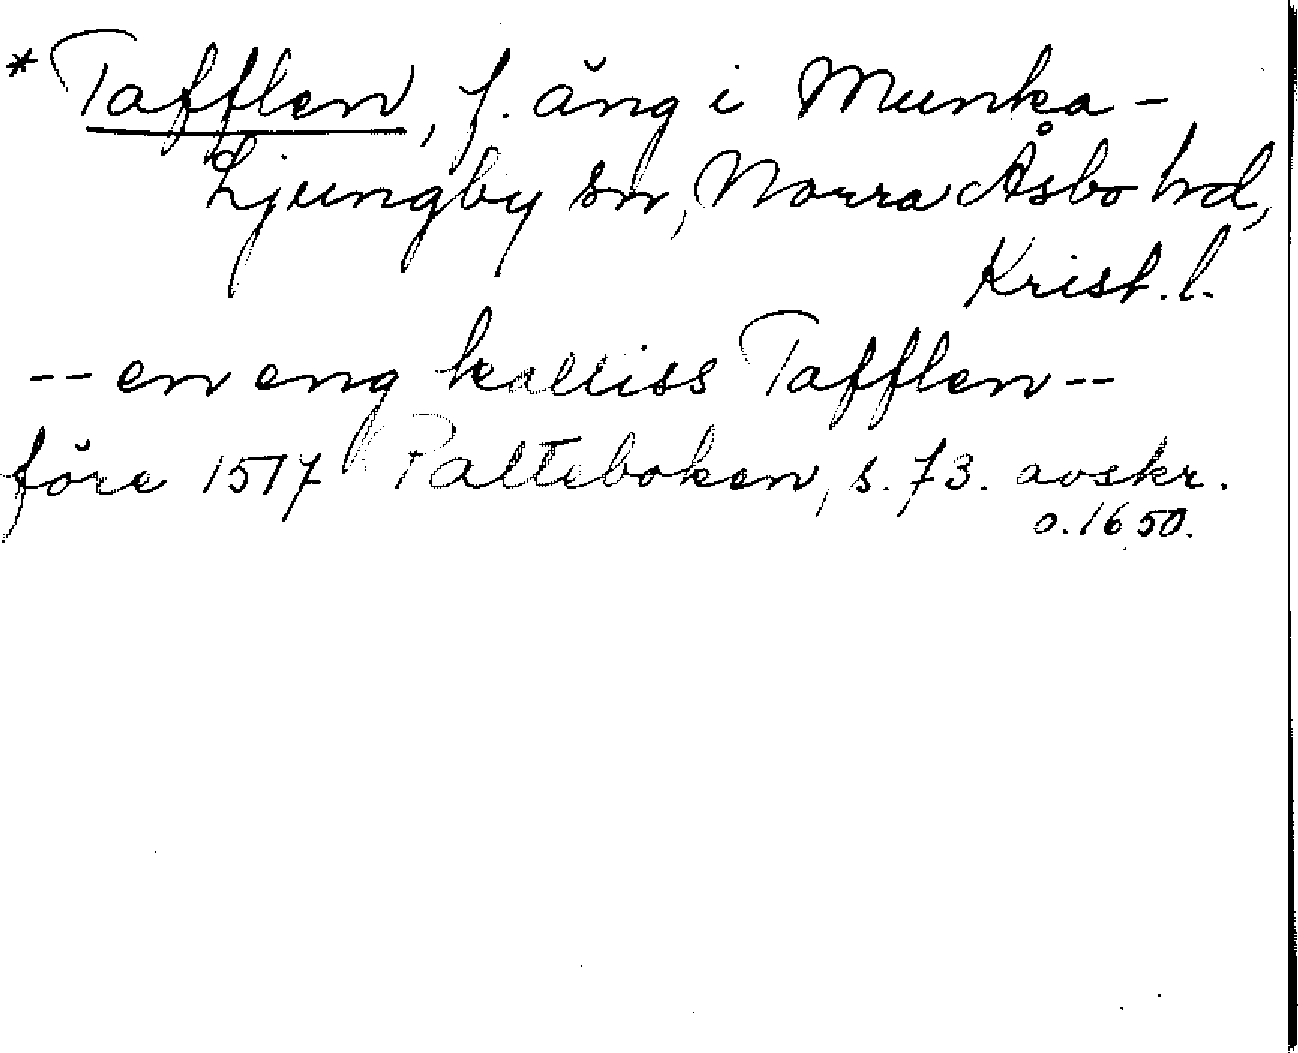 * Tafflen, f. äng i Munka-
Ljungby sn, Norra Åsbo hd,
Krist. l.
-- en eng kalliss Tafflen --
före 1517 Palteboken, s. 73. avskr.
o. 1650.